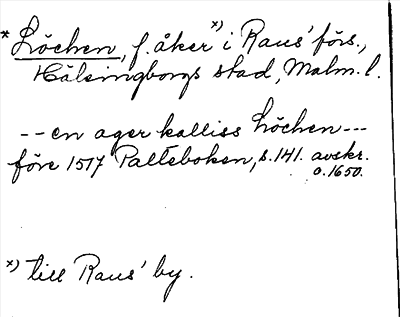 * Löchen, f. åker x) i Raus' förs.,
Hälsingborgs stad, Malm. l.
-- en ager kalliss Löchen ---
före 1517 Palteboken, s. 141. avskr.
o. 1650.
x) till Raus' by.